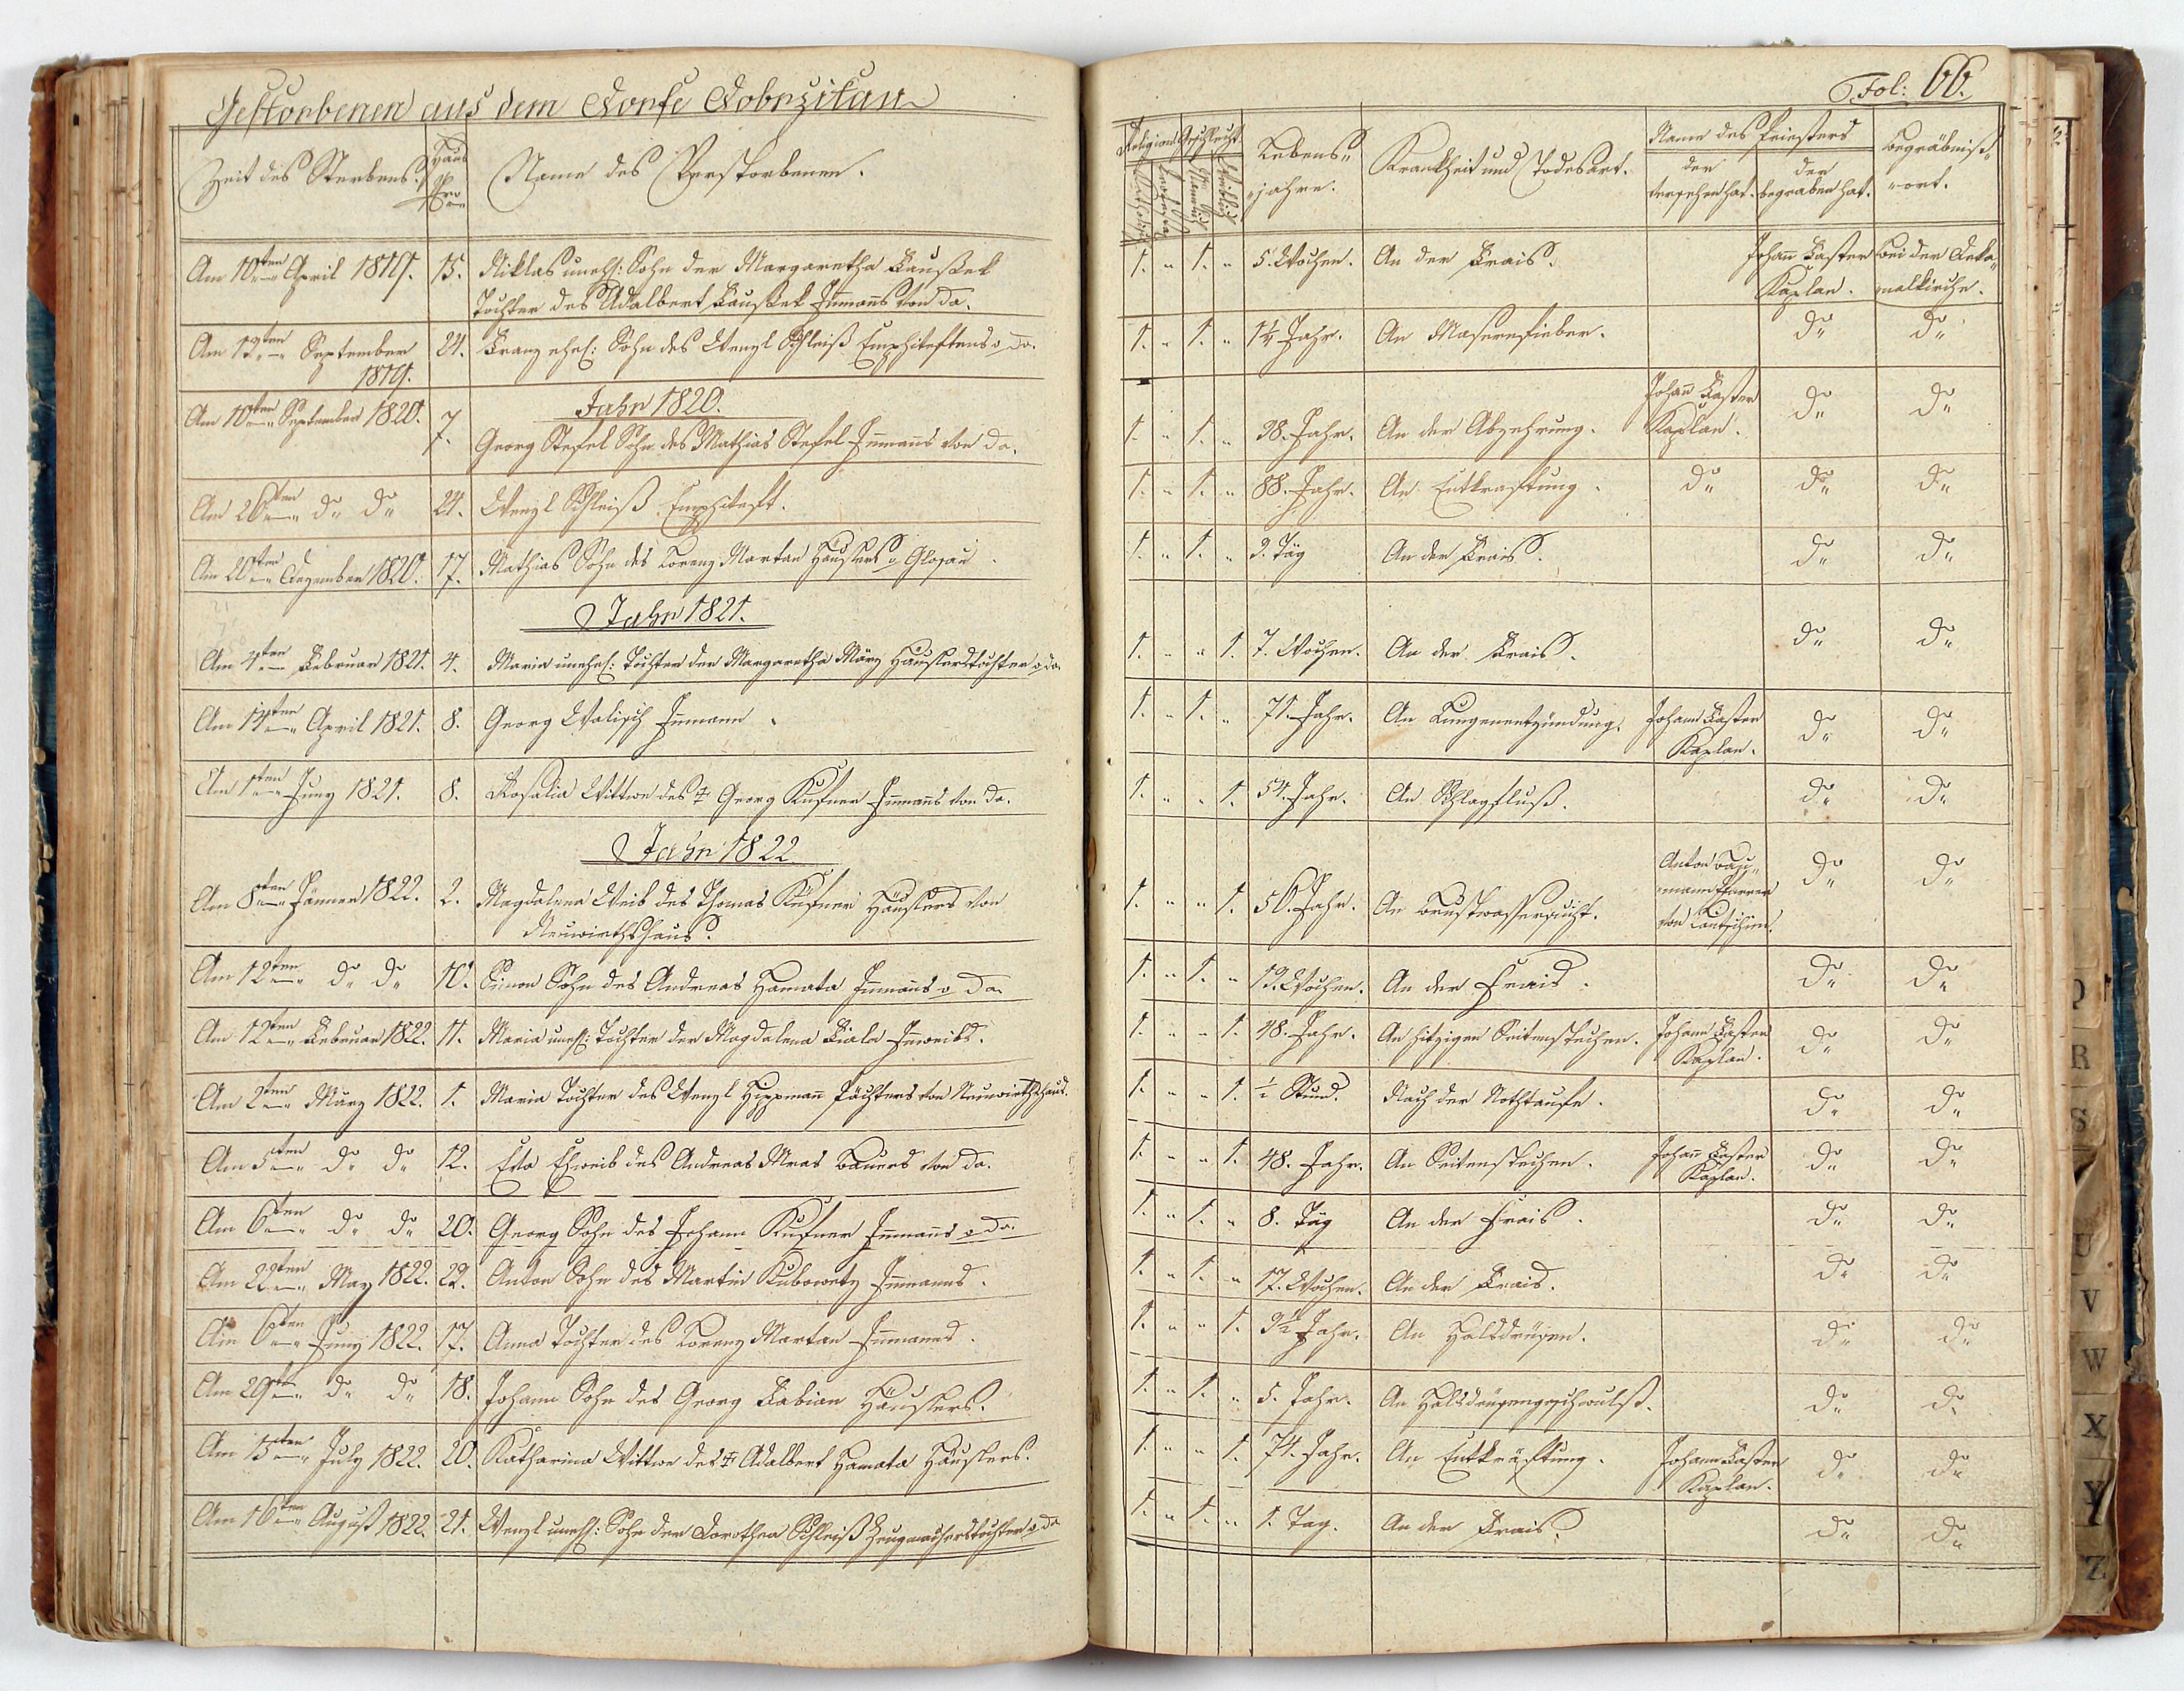 Gestorbenen aus dem Dorfe Dobrzikau
Fol: 66.
Zeit des Sterbens.
Haus
Nro
Name des Verstorbenen.
Religion
Katholisch
Geschlecht
Männlich
Weiblich
Lebens-
jahre.
Krankheit und Todesart.
Name des Priesters
der
versehen hat.
der
begraben hat.
Begräbniß-
ort.
Am 10ten April 1819. 15. Niklas unehl: Sohn der Margaretha
Tochter des Adalbert Inmanns von da.
1. " 1. " 5. Wochen. An der Frais. Johann Faster
Kaplan. Bei der Deka-
nalkirche.
Am 13ten September
1819. 24. Franz ehel: Sohn des Wenzl Schleiß Emphiteftens v da. 1. " 1. " 1¼ Jahr. An Masernfieber. do do
Jahr 1820.
Am 10ten September 1820. 7. Georg Stefel Sohn des Mathias Stefel Inmanns von da. 1. " 1. " 38. Jahr. An der Abzehrung. Johann Faster
Kaplan. do do
Am 26ten do do 24. Wenzl Schleiß Emphiteft. 1. " 1. " 88. Jahr. An Entkraftung. do do do
Am 20ten Dezember 1820. 17. Mathias Sohn des Lorenz Martan Häuslers v Glosau. 1. " 1. " 3. Täg An der Frais. do do
Jahr 1821.
Am 4ten Februar 1821. 4. Maria unehel: Tochter der Margaretha März Häuslerstochter v da 1. " " 1. 7. Wochen. An der Frais. do do
Am 14ten April 1821. 8. Georg Walisch Inmann. 1. " 1. " 71. Jahr. An Lungenentzündung. Johann Faster
Kaplan. do do
Am 1ten Juny 1821. 8. Rosalia Wittwe des † Georg Kufner Inmanns von da. 1. " " 1. 54. Jahr. An Schlagfluß. do do
Jahr 1822
Am 8ten Jänner 1822. 2. Magdalena Weib des Thomas Kufner Häuslers von
Neuwirthshaus. 1. " " 1. 56. Jahr. An Brustwassersucht. Anton Bau-
mann Pfarrer
von do do
Am 12ten do do 10. Simon Sohn des Andreas Hamata Inmanns v da. 1. " 1. " 13. Wochen. An der Frais. do do
Am 12ten Februar 1822. 11. Maria unehl: Tochter der Magdalena Fiala Inweibs. 1. " " 1. 48. Jahr. An hitzigen Seitenstechen. Johann Faster
Kaplan. do do
Am 2ten März 1822. 1. Maria Tochter des Wenzl Hippmann Pächters von Neuwirthshaus. 1. " " 1. ½ Stund. Nach der Nothtaufe. do do
Am 5ten do do 12. Eva Eheweib des Andreas Mras Bauers von da. 1. " " 1. 48. Jahr. An Seitenstechen. Johann Faster
Kaplan. do do
Am 6ten do do 20. Georg Sohn des Johann Kufner Inmanns v da. 1. " 1. " 8. Täg An der Frais. do do
Am 22ten May 1822. 22. Anton Sohn des Martin Inmanns. 1. " 1. " 17. Wochen. An der Frais. do do
Am 6ten Juny 1822. 17. Anna Tochter des Lorenz Martan Inmanns. 1. " " 1. 3½ Jahr. An Halsdrüsen. do do
Am 29ten do do 18. Johann Sohn des Georg Fabian Häuslers. 1. " 1. " 5. Jahr. An Halsdrüsengeschwulst. do do
Am 15ten July 1822. 20. Katharina Wittwe des † Adalbert Hamata Häuslers. 1. " " 1. 74. Jahr. An Entkräftung. Johann Faster
Kaplan. do do
Am 16ten August 1822. 21. Wenzl unehl: Sohn der Dorothea Schleiß Zeugmacherstochter v da 1. " 1. " 1. Tag. An der Frais. do do
R
S
U
V
W
X
Y
Z